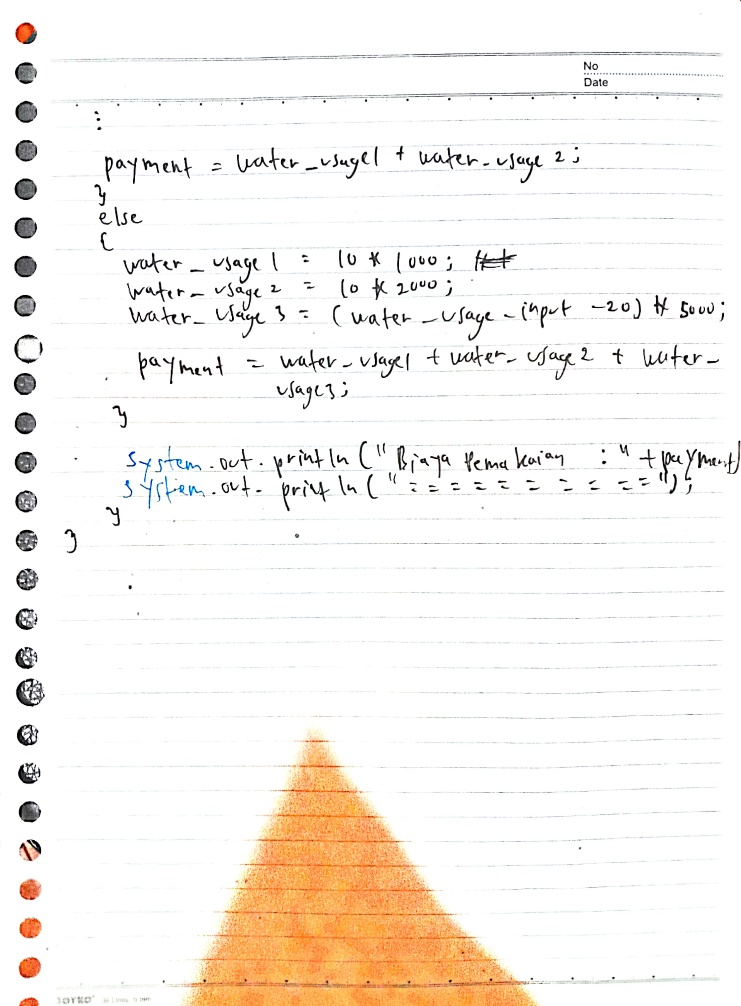 No
Date
:
payment = water_usage1 + water_usage 2;
}
else
{
water_usage 1 = 10 * 1000;
water_usage 2 = 10 * 2000;
water_usage 3 = (water_usage_input -20) * 5000;
payment = water_usage1 + water_usage 2 + water_
usage3;
}
System.out.println(" Biaya Pemakaian : " + payment)
System.out.println(" = = = = = = = = = = ");
}
}
JOYKO